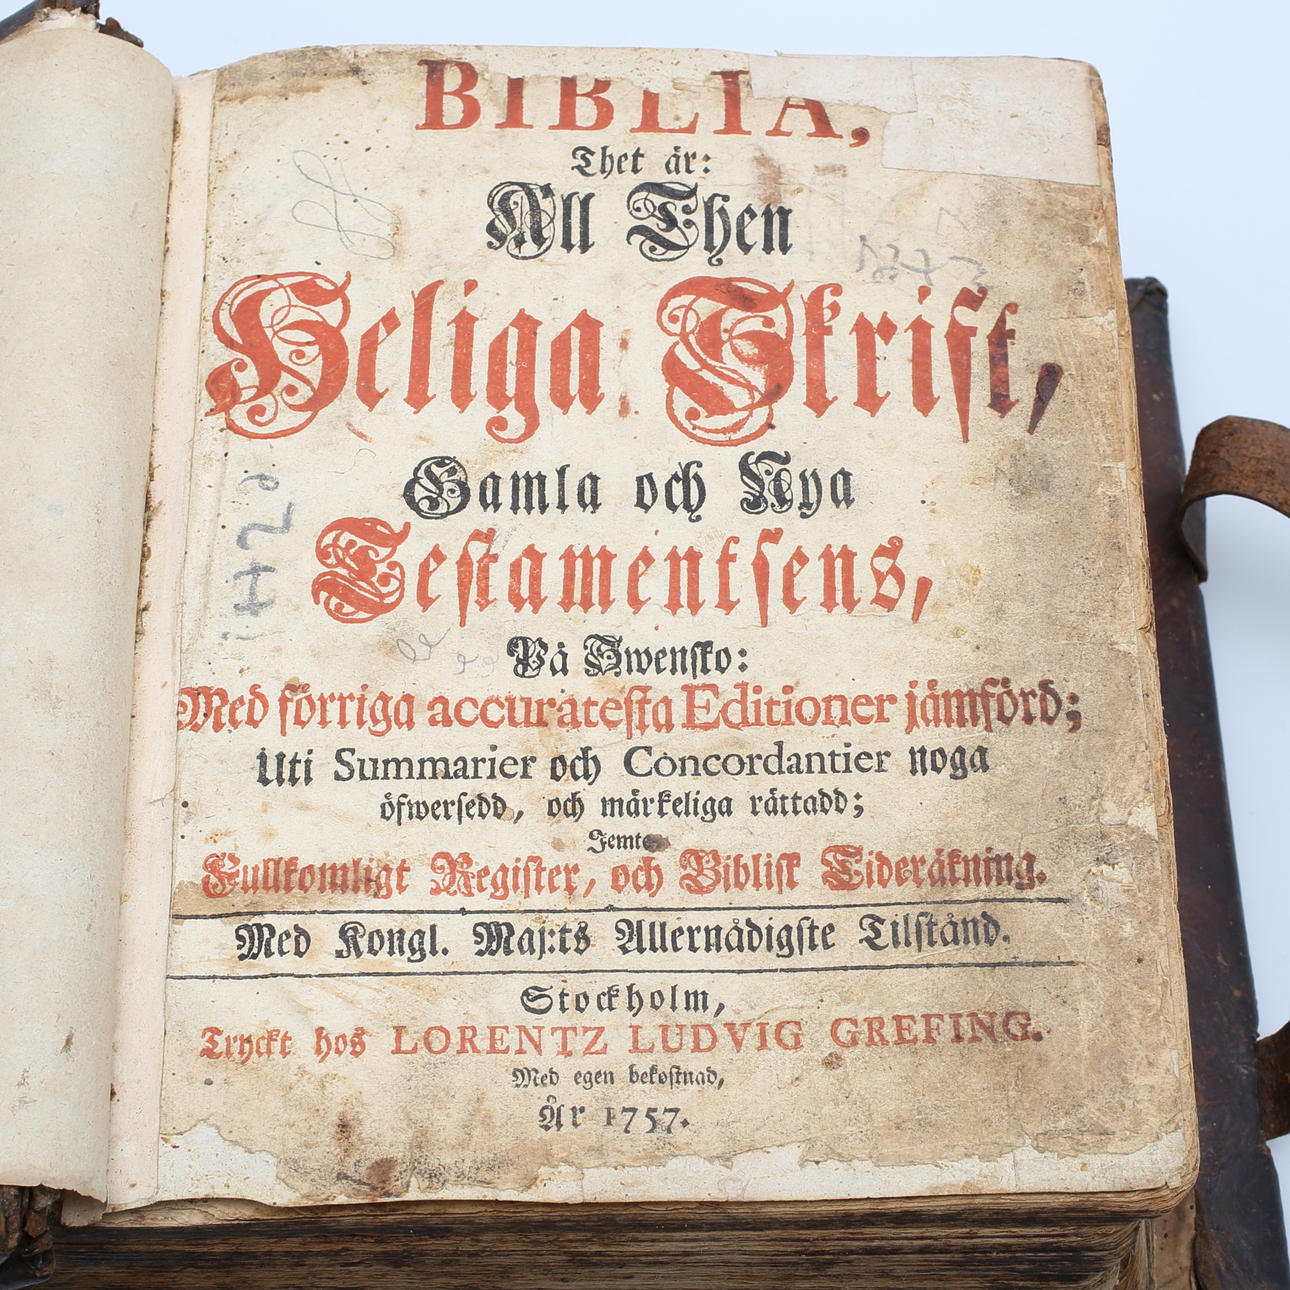 BIBLIA,
Thet är:
All Then
Heliga Skrift,
Gamla och Nya
Testamentsens,
På Swensko:
Med förriga accurateſta Editioner jämförd;
Uti Summarier och Concordantier noga
öfwerſedd, och märkeliga rättadd;
Jemte
Fullkomligt Regiſter, och Bibliſk Tideräkning.
Med Kongl. Maj:ts Allernådigſte Tilſtånd.
Stockholm,
Tryckt hos LORENTZ LUDVIG GREFING.
Med egen bekoſtnad,
År 1757.